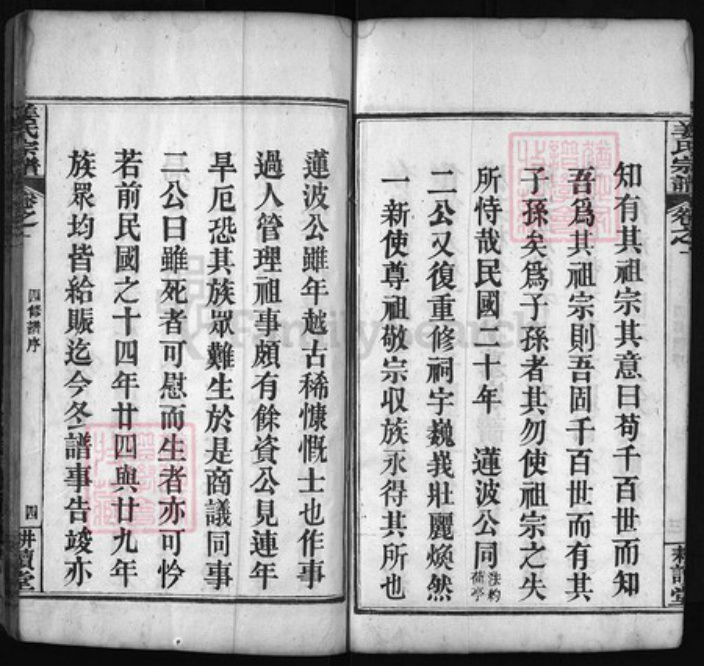 知有其祖宗其意曰苟千百世而知
吾爲其祖宗則吾固千百世而有其
子孫矣爲子孫者其勿使祖宗之失
所恃哉民國二十年 蓮波公同
二公又復重修祠宇巍義壯麗煥然
一新使尊祖敬宗収族永得其所也
蓮波公雖年越古稀慷慨士也作事
過人管理祖事頗有餘資公見連年
旱厄恐其族眾難生於是商議同事
二公曰雖死者可慰而生者亦可怜
若前民國之十四年廿四與廿九年
族眾均皆給賑迄今冬譜事告竣亦
姜氏宗譜
卷之一
四修譜序
四
耕讀堂
姜氏宗譜
卷之一
三
耕讀堂
FamilySearch